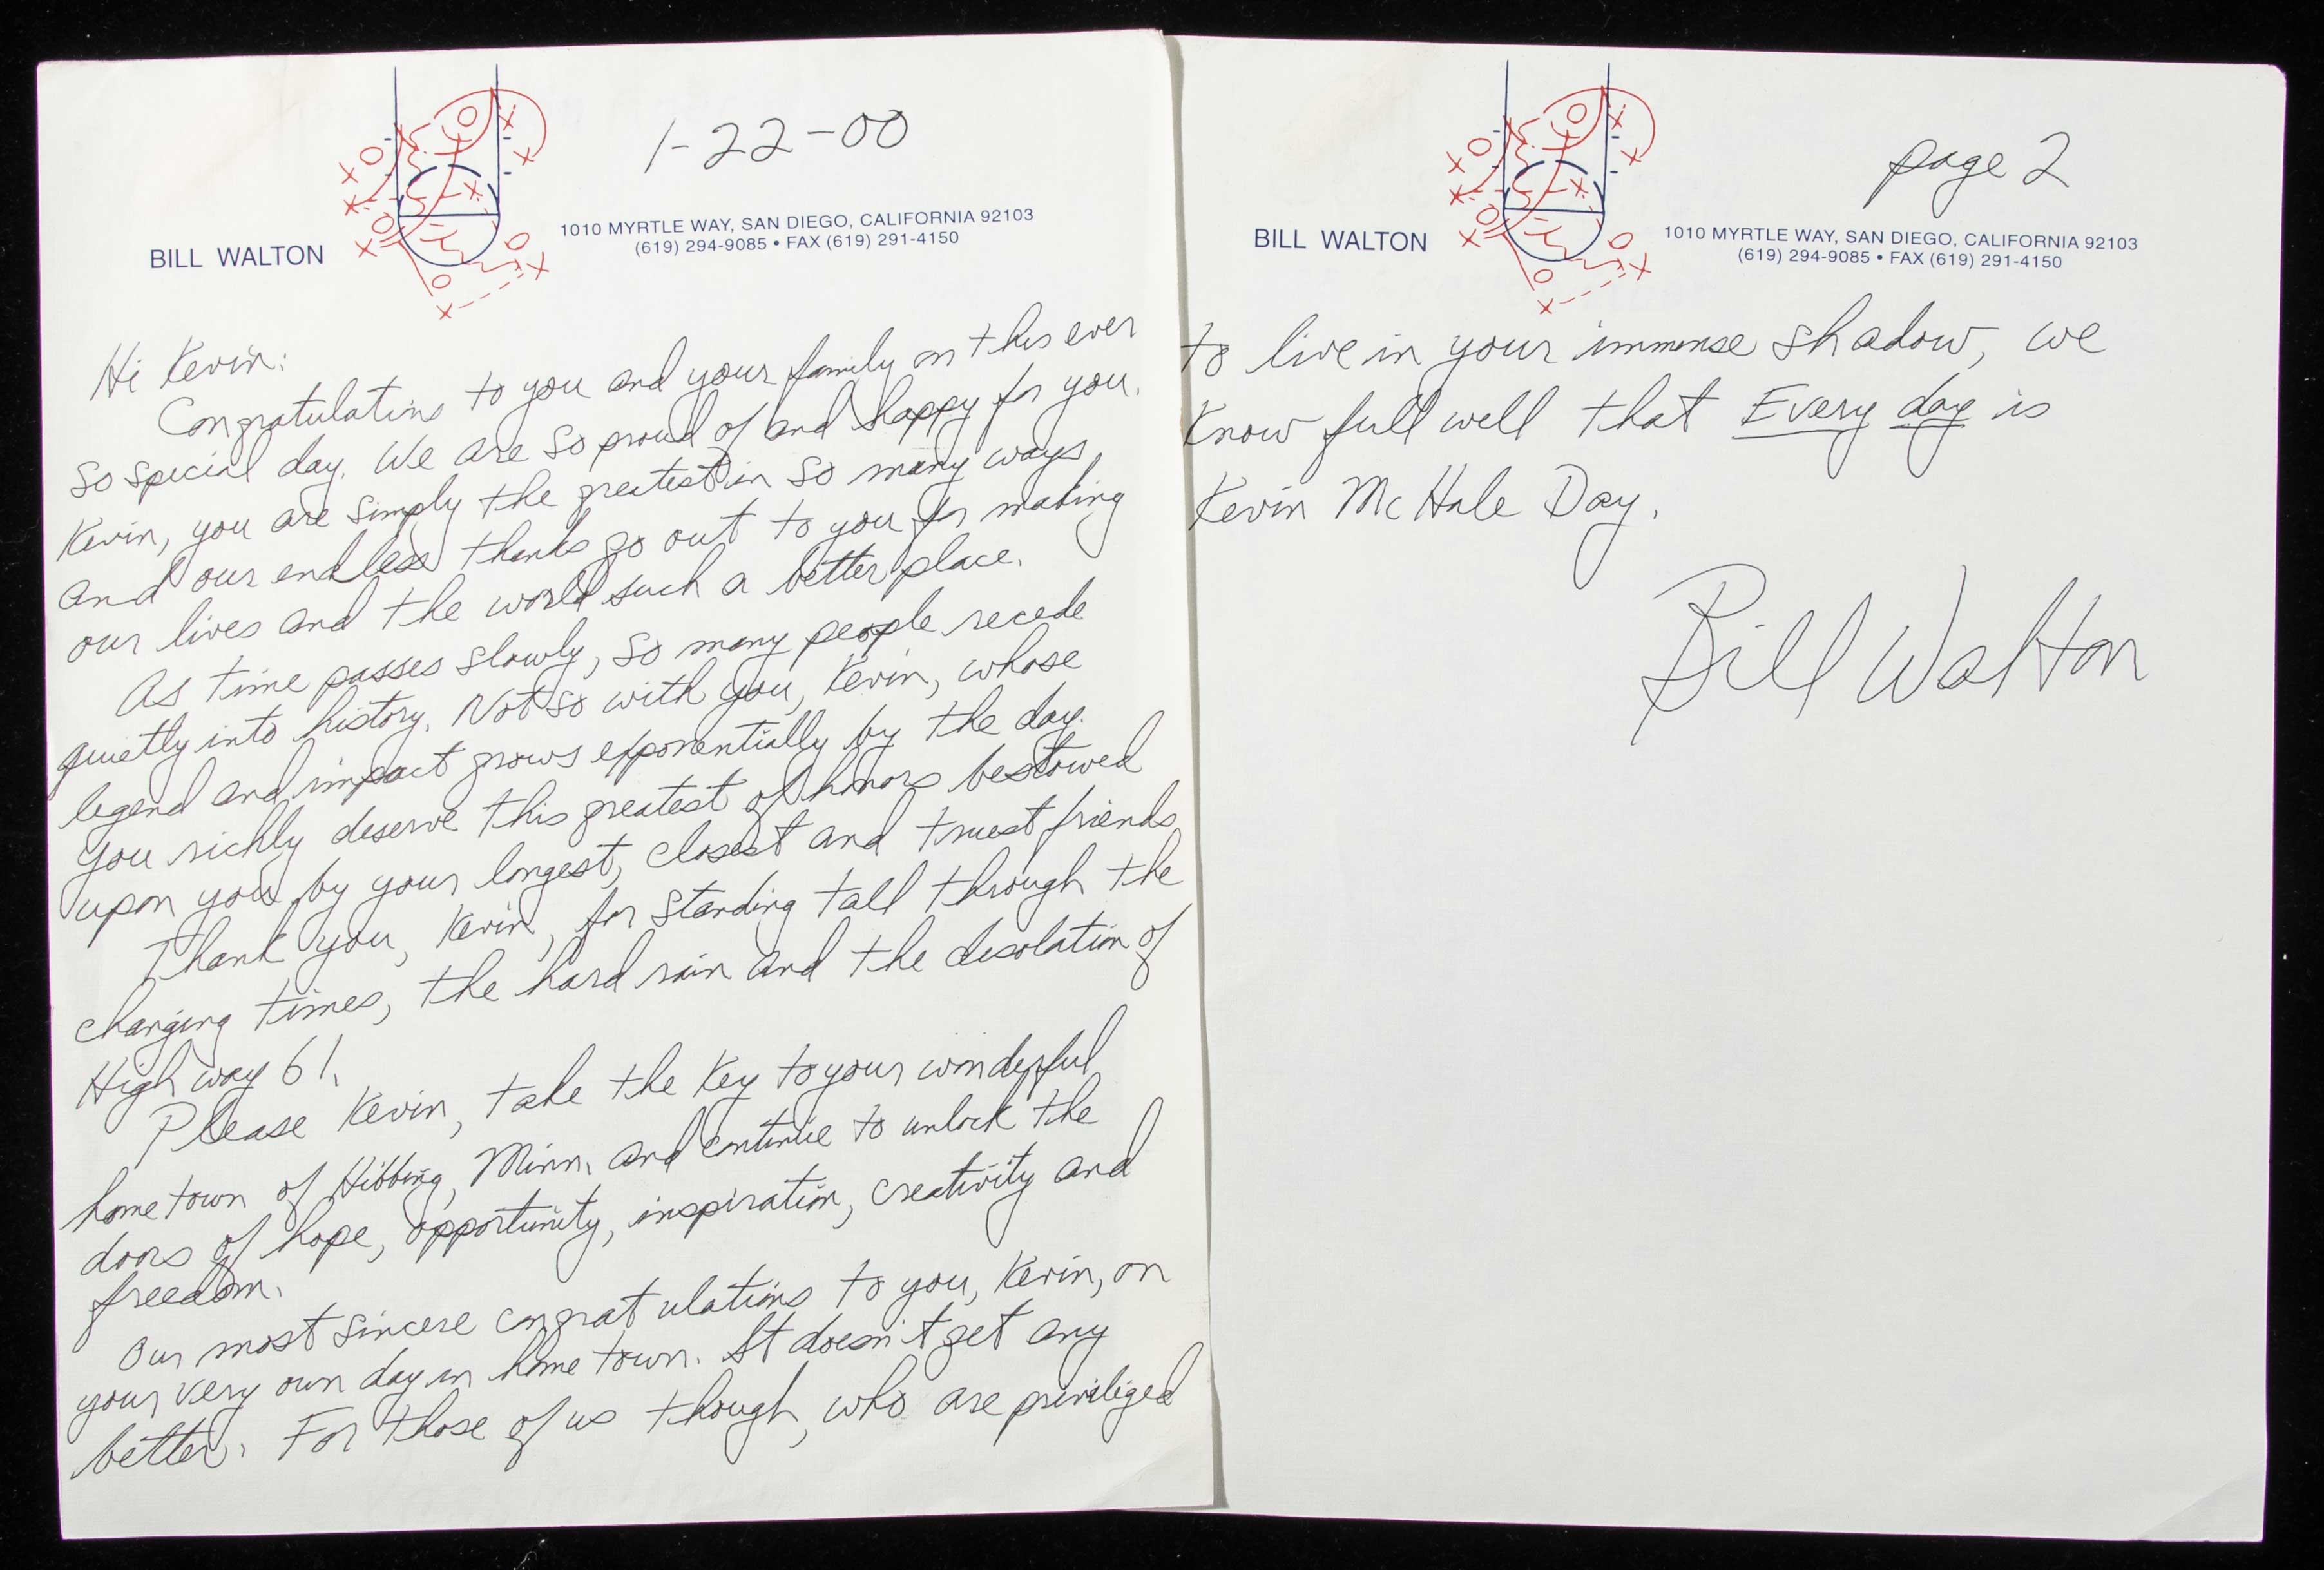 1-22-00
BILL WALTON
1010 MYRTLE WAY, SAN DIEGO, CALIFORNIA 92103
(619) 294-9085 • FAX (619) 291-4150
Hi Kevin:
Congratulations to you and your family on this ever
so special day. We are so proud of and happy for you.
Kevin, you are simply the greatest in so many ways
and our endless thanks go out to you for making
our lives and the world such a better place.
As time passes slowly, so many people recede
quietly into history. Not so with you, Kevin, whose
legend and impact grows exponentially by the day.
You richly deserve this greatest of honors bestowed
upon you by your longest, closest and truest friends.
Thank you, Kevin, for standing tall through the
changing times, the hard rain and the desolation of
Highway 61.
Please Kevin, take the key to your wonderful
home town of Hibbing, Minn. and continue to unlock the
doors of hope, opportunity, inspiration, creativity and
freedom.
Our most sincere congratulations to you, Kevin, on
your very own day in home town. It doesn't get any
better. For those of us though, who are priviliged
page 2
BILL WALTON
1010 MYRTLE WAY, SAN DIEGO, CALIFORNIA 92103
(619) 294-9085 • FAX (619) 291-4150
to live in your immense shadow, we
know full well that Every day is
Kevin McHale Day.
Bill Walton